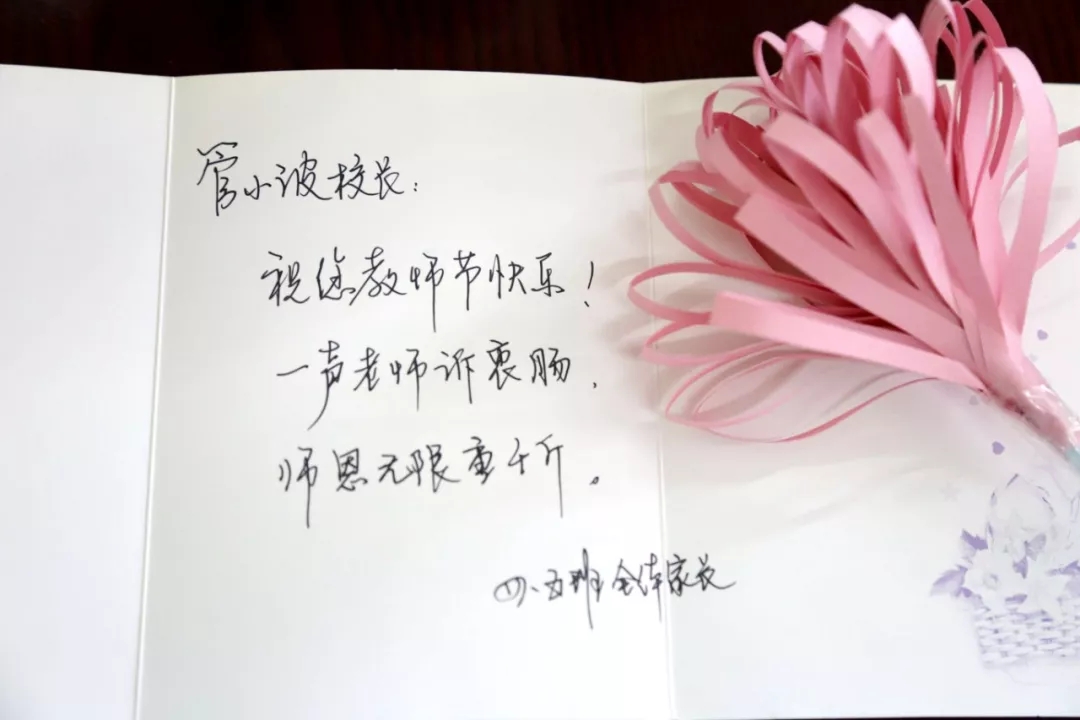 管小波校长：
祝您教师节快乐！
一声老师诉衷肠，
师恩无限重千斤。
四、五班全体家长